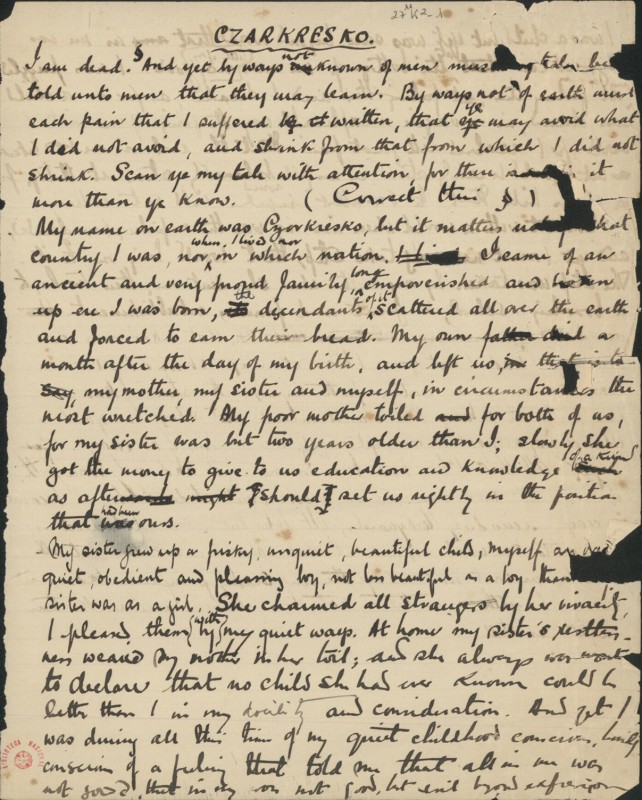 27 1/2 1
CZARKRESKO.
I am dead. And yet by ways not known of men must my tale be
told unto men that they may learn. By ways not of earth must
each pain that I suffered be written, that ye may avoid what
I did not avoid, and shrink from that from which I did not
shrink. Scan ye my tale with attention, for there is in it
more than ye know. (Correct this)
My name on earth was Czarkresko, but it matters not what
country I was, nor when I lived nor in which nation. I came of an
ancient and very proud family, long empoverished and broken
up ere I was born, the descendants of it scattered all over the earth
and forced to earn their bread. My own father died a
month after the day of my birth, and left us, in that is to
say, my mother, my sister and myself, in circumstances the
most wretched. My poor mother toiled and for both of us,
for my sister was but two years older than I; slowly she
got the money to give to us education and knowledge of a kind
as afterwards might should set us rightly in the position
that had been ours.
My sister grew up a frisky, unquiet, beautiful child, myself a
quiet, obedient and pleasing boy, not less beautiful as a boy than
sister was as a girl. She charmed all strangers by her vivacity,
I pleased them with by my quiet ways. At home my sister's restless-
ness wearied my mother in her toil; and she always was wont
to declare that no child she had ever known could be
better than I in my docility and consideration. And yet I
was during all this time of my quiet childhood conscious,
conscious of a feeling that told me that all in me was
not good, that in my was not good, but evil beyond expression